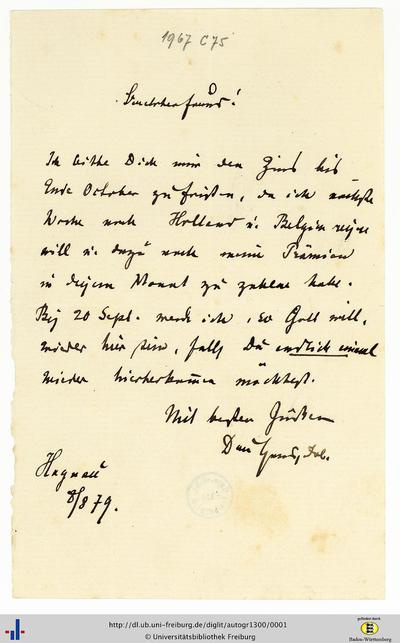 1967 C 75
Ich bitte Dich mir den Zins bis
Ende October zu fristen, da ich nächste
Woche nach Holland u. Belgien reisen
will u. dazu noch meine Prämien
in diesem Monat zu zahlen habe.
Bis 20 Sept. werde ich, so Gott will,
wieder hier sein, falls Du endlich einmal
wieder hierherkommen möchtest.
Mit besten Grüßen
Dein
Hagnau
8/8 79.
http://dl.ub.uni-freiburg.de/diglit/autogr1300/0001
© Universitätsbibliothek Freiburg
gefördert durch
Baden-Württemberg